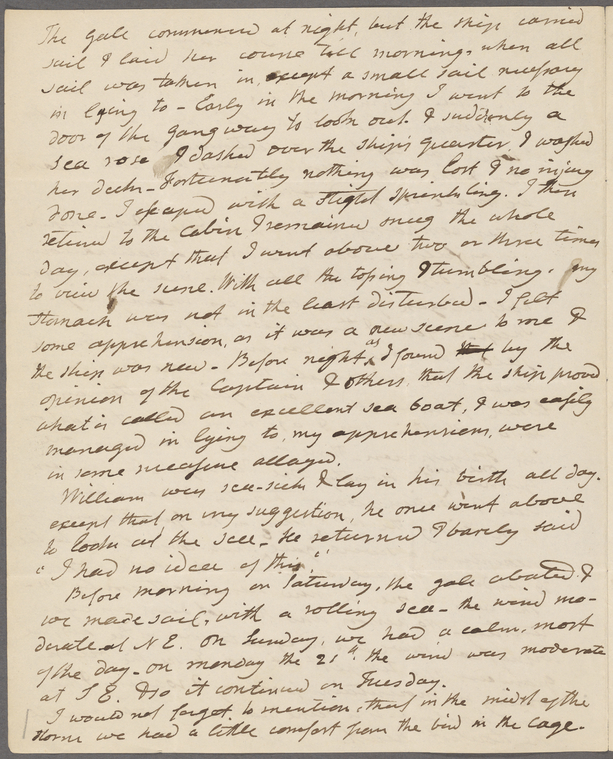 The gale commenced at night, but the ship carried
sail & laid her course till morning, when all
sail was taken in, except a small sail necessary
in lying to - Early in the morning I went to the
door of the gangway to look out. & suddenly a
sea rose & dashed over the ship's quarter, & washed
her deck - Fortunately nothing was lost & no injury
done - I escaped with a slight sprinkling. I then
retired to the Cabin & remained snug the whole
day, except that I went above two or three times
to view the scene. With all the tossing & tumbling, my
stomach was not in the least disturbed - I felt
some apprehension, as it was a new scene to me &
the ship was new - Before night, as I found by the
opinion of the Captain & others, that the ship proved
what is called an excellent sea boat, & was easily
managed in lying to, my apprehensions, were
in some measure allayed.
William was sea-sick & lay in his birth all day.
except that on my suggestion, he once went above
to look at the sea - he returned & barely said
"I had no idea of this."
Before morning on Saturday, the gale abated &
we made sail, with a rolling sea - the wind mo-
derate at N E. On Sunday, we had a calm, most
of the day - on monday the 21st. the wind was moderate
at S E. & so it continued on Tuesday.
I would not forget to mention, that in the midst of the
storm we had a little comfort from the bird in the cage -